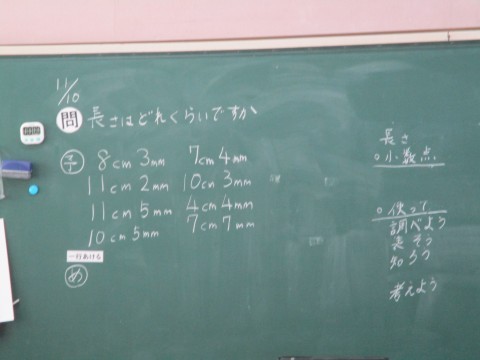 11/10
問 長さはどれくらいですか
予 8cm 3mm 7cm 4mm
11cm 2mm 10cm 3mm
11cm 5mm 4cm 4mm
10cm 5mm 7cm 7mm
一行あける
め
長さ
○小数点
○使って
調べよう
表そう
知ろう
考えよう